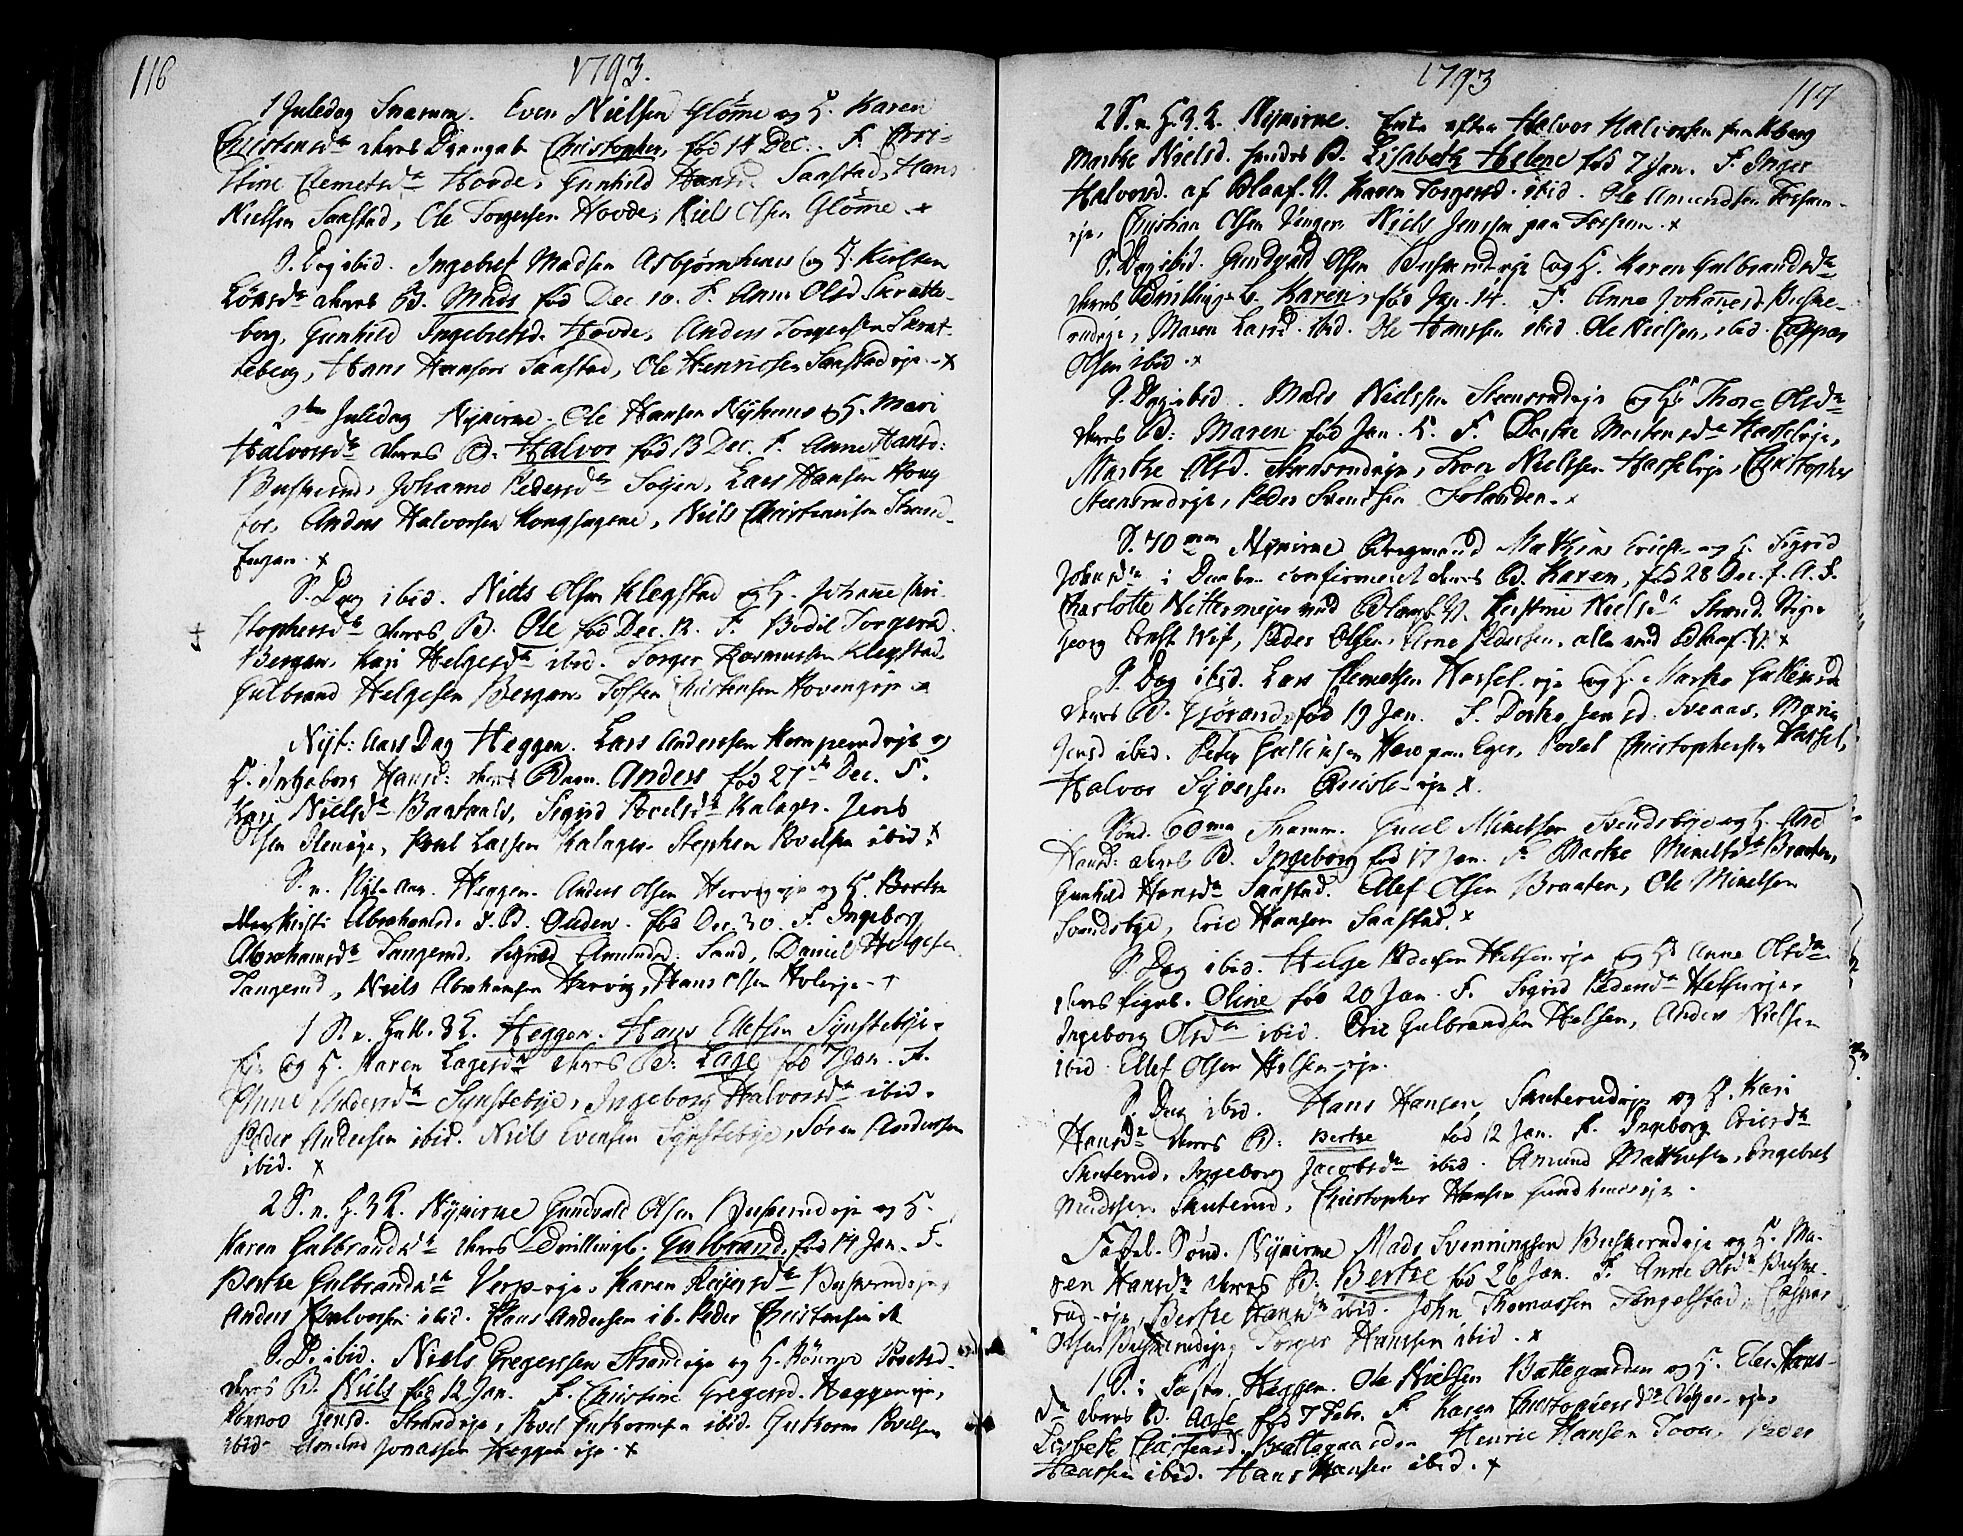 116
1793.
1 Juledag Snarum. Even Nielsen Glomme og H. Karen
Christensd. deres Drengeb. Christopher, fød 14 Dec. F. Chri-
stine Clemetsd. Hovde, Gunhild Hansd. Saastad, Hans
Nielsen Saastad, Ole Torgersen Hovde, Niels Olsen Glomme. x
S. Dag ibid. Ingebret Madsen Asbjørnhuus og H. Kirsten
Larsd. deres B. Mads fød Dec. 10. F. Anne Olsd. Skratte-
berg, Gunhild Ingebretsd. Hovde, Anders Torgersen Skrat-
teberg, Hans Hansen Saastad, Ole Henricsen Saastadeje. x
2den Juledag Nykirne. Ole Hansen Nyhuus og H. Mari
Halvorsd. deres B. Halvor fød 13 Dec. F. Anne Hansd:
Buskerud, Johanne Pedersd. Lars Hansen Houg
Anders Halvorsen Niels Christensen Strand-
Engen. x
S. Dag ibid. Niels Olsen Klegstad og H. Johanne Chri-
stophersd. deres B. Ole fød Dec. 12. F. Bodil Torgersd.
Bergan, Kari Helgesd. ibid. Torger Rasmussen Klegstad,
Gulbrand Helgesen Bergan, Tosten Christensen Hovengeje. x
Nyt: Aars Dag Heggen. Lars Anderssen Komperudeje og
H. Ingeborg Hansd: deres Barn. Anders fød 27 Dec. F.
Kari Nielsd. Sigrid Povelsd. Kalager. Jens
Olsen Poul Larsen Kalager. Stephen Povelsen ibid. x
S. n. Nyt Aar. Heggen. Anders Olsen Hervigeje og H. Berthe
Kirsti Abrahamsd. B. Guden. fød Dec. 30. F. Ingeborg
Abrahamsd. Tangerud, Sigrid Amundsd. Sand, Daniel Helgesen
Tangerud, Niels Abrahamsen Hervig, Hans Olsen Holeeje. +
1 S. n. Hell. 3 K. Heggen. Hans Ellefsen Synsteby-
eje og H. Maren Lagesd. deres B: Lage fød 7 Jan. F.
Anne Andersd. Synstebye, Ingeborg Halvorsd. ibid.
Peder Andersen ibid. Niels Evensen Synstebye, Søren Anderssen
ibid. x
2 S. n. H. 3 K. Nykirne Gundvald Olsen Buskerudeje og H.
Karen Gulbrandsd. deres Tvillingb. Gulbrand, fød 14 Jan. F.
Berthe Gulbrandsd. Verp-eje, Karen Reiersd. Buskerudeje,
Anders Halvorsen ibid. Claus Andersen ib. Peder Christensen ib
S. D. ibid. Niels Gregerssen Strandeje og H. Rønnoe Povelsd.
deres B. Niels fød 12 Jan. F. Christine Gregersd. Heggeneje,
Rønnoe Jensd. Strandeje, Povel Guttormsen ibid. Guttorm Povelsen
ibid. Amund Jonassen Heggen eje. x
1793
117
2 S. n. H. 3 K. Nykirne. Enke efter Halvor Halvorsen fra Kberg
Marthe Nielsd. hendes B. Lisabeth Helene fød 7 Jan. F. Inger
Halvorsd. af Blaaf. V. Karen Torgersd. ibid. Ole Amundsen Fossum-
eje, Christian Olsen Niels Jenssen paa Fossum. x
S. Dag ibid. Gundvald Olsen Buskerudeje og H. Karen Gulbrandsd.
deres Tvilling-b. Karen, fød Jan. 14. F. Anne Johannesd. Buske-
rudeje, Maren Larsd. ibid. Ole Hanssen ibid. Ole Nielsen, ibid. Casper
Olsen ibid. x
S. Dag ibid. Mads Nielssen Steensrudeje og H. Thore Olsd.
deres B: Maren fød Jan. 5. F. Dorthe Mortensd. Hasseleje,
Marthe Olsd. Steensrudeje, Iver Nielssen Hasseleje, Christopher
Steensrudeje, Peder Svendsen x
S. 70mm Nykirne Bergmand Mathias Erichs. og H. Sigrid
Johnsd. i Daaben confirmeret deres B. Karen, fød 28 Dec. F. A. S.
Charlotte Nittermejer ved Blaaf. V. Kirstine Nielsd. Strand. Stiger
Georg Ernst Wif, Peder Olsen, Arne Pedersen, alle ved Blaaf. V. x
S. Dag ibid. Lars Clemetsen Hassel-eje og H. Marthe Gullicsd.
deres B. Gjørand, fød 19 Jan. F. Dorthe Jensd. Svenaas, Marie
Jensd. ibid. Peter Gullicsen paa Eger, Povel Christophersen Hassel,
Halvor Syversen eje x.
Sønd. 60ma Snarum. Gueel Mikelsen Svendsbye og H. Ane
Hansd: deres B. Ingeborg fød 17 Jan. F. Marthe Mikelsd. Braaten,
Gunhild Hansd. Saastad. Ellef Olsen Braaten, Ole Mikelsen
Svendsbye, Eric Hansen Saastad. x
S. Dag ibid. Helge Pedersen Helseneje og H. Anne Olsd.
deres Pigeb. Oline fød 20 Jan. F. Sigrid Pedersd. Helseneje,
Ingeborg Olsd. ibid. Eric Gulbrandsen Helsen, Anders Nielsen
ibid. Ellef Olsen Helsen-eje.
S. Dag ibid. Hans Hansen, Skuterudeje og H. Kari
Hansd. deres B: Berthe fød 12 Jan. F. Ingeborg Ericsd.
Skuterud, Ingeborg Jacobsd. ibid. Amund Mathisen, Ingebret
Madssen Skuterud, Christopher Hansen
Fastel. Sønd. Nykirne Mads Svenningsen Buskerudeje og H. Ma-
ren Hansd. deres B. Berthe fød 26 Jan. F. Anne Olsd. Buske-
rud-eje, Berthe Hansd. ibid. John Thomassen Tengelstad, Casper
Olsen Buskerudeje, Torger Hanssen ibid. x
1 S. i Fasten. Heggen. Ole Nielsen Battegardden og H. Elen Hans-
d. deres B. Aase fød 7 Febr. F. Karen Christophersd. eje,
Lisbeth Clausensd. Battegaardden Henric Hansen Peder
Hanssen ibid. Hans Hansen ibid. x